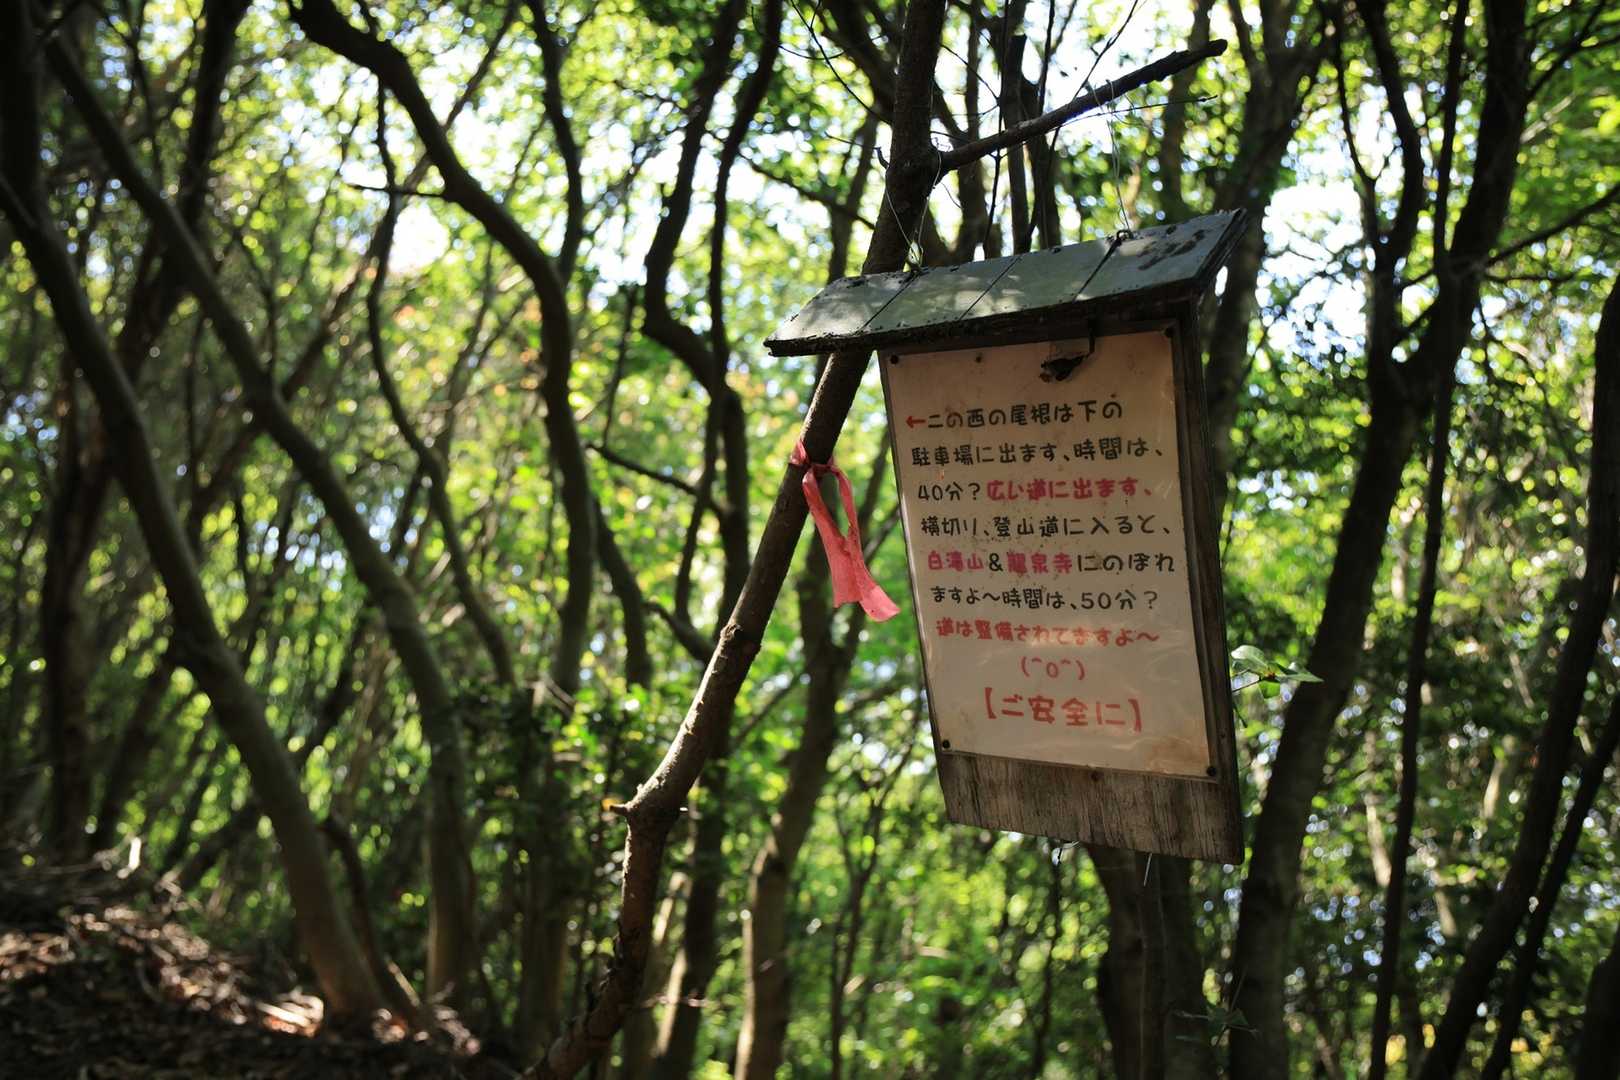 ←二の西の尾根は下の
駐車場に出ます、時間は、
40分?広い道に出ます、
横切り、登山道に入ると、
白滝山&龍泉寺にのぼれ
ますよ〜時間は、50分?
道は整備されてますよ〜
(^o^)
【ご安全に】